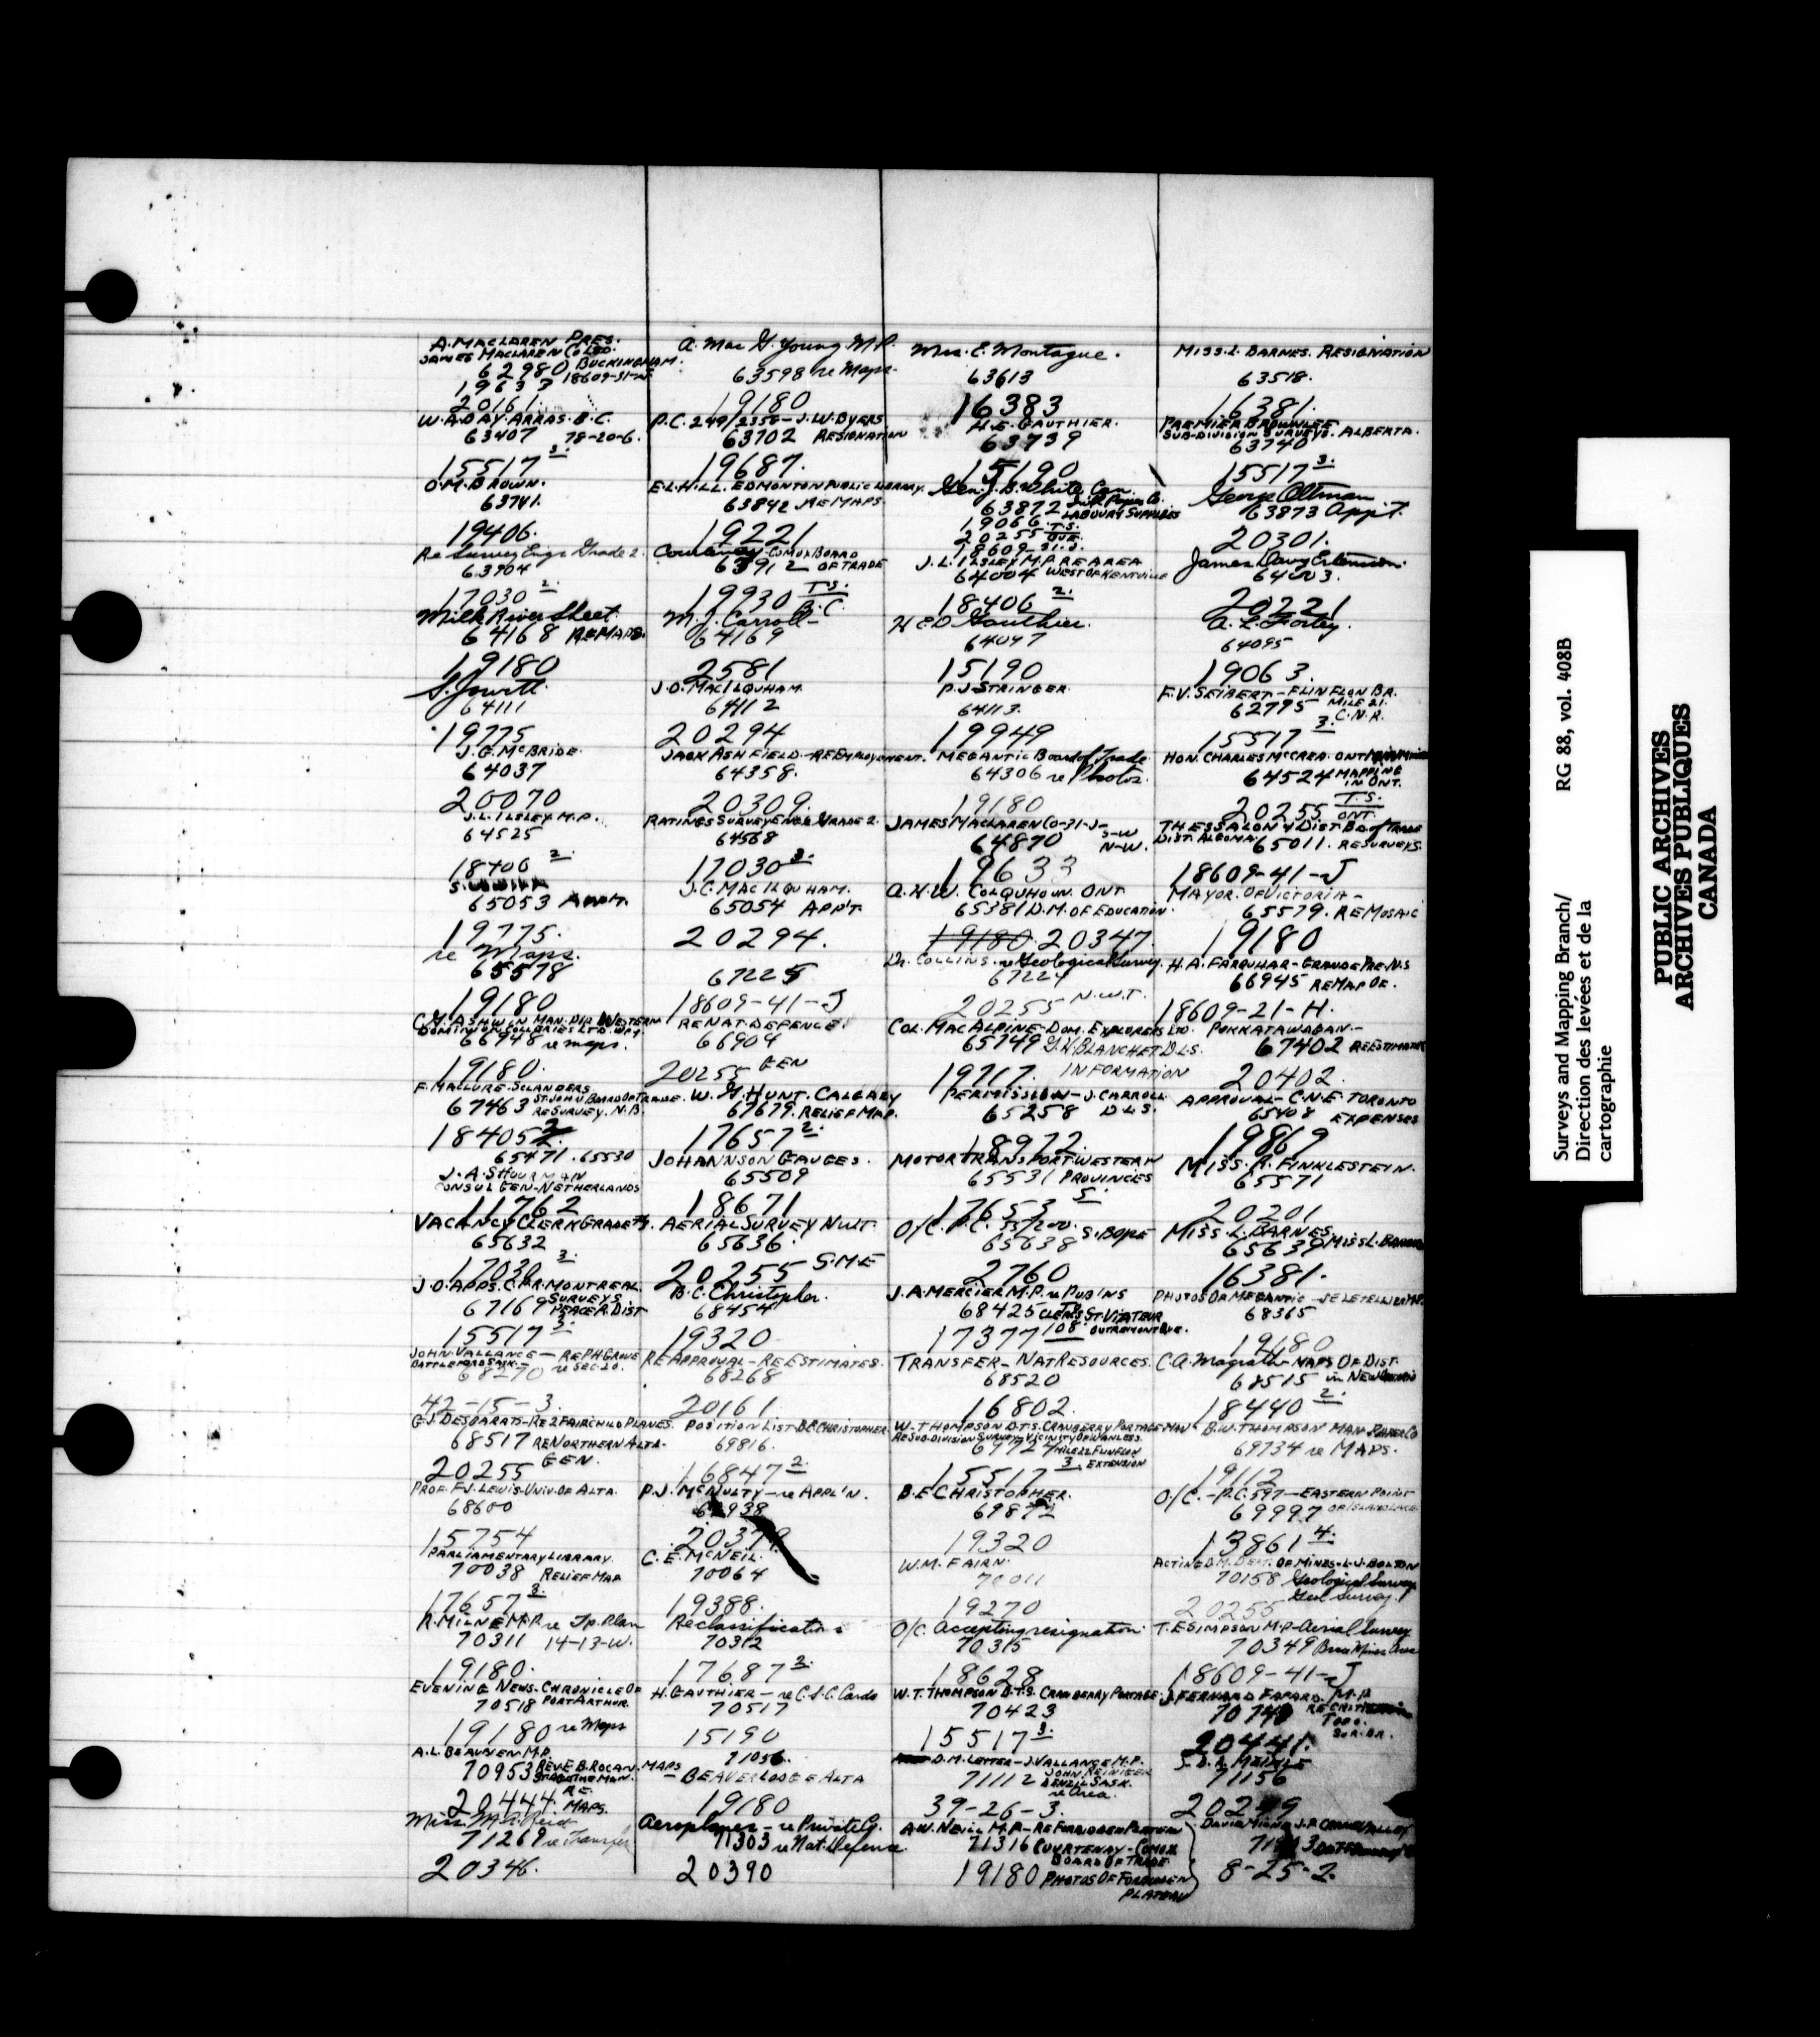 A. MACLAREN PRES.
JAMES MACLAREN CO LTD.
62980 BUCKINGHAM.
19637 18609-31-
20161.
W. A. DAY. ARRAS. B.C.
63407 78-20-6.
15517 3.
O. M. BROWN.
63741.
19406.
Re Survey Engr Grade 2.
63904
17030 2.
Milk River Sheet.
64168 RE MAPS.
19180
64111
19775
J. G. McBRIDE.
64037
20070
J. L. ILSLEY. M.P.
64525
18406 2.
65053
19775.
re Maps.
65578
19180
C. G. ASHWIN MAN. DIR WESTERN
DOMINION COLLERIES LTD. WPG.
66948 re maps.
19180.
F. MACLURE. SCLANDERS
67463 ST JOHN BOARD OF TRADE.
RE SURVEY. N.B.
18405 2.
65471. 65530
J. A.
CONSUL GEN-NETHERLANDS
11762
VACANCY CLERK GRADE 4.
65632
17030 3.
J. O. APPS. C.P.R. MONTREAL
67169 SURVEYS
PEACE R. DIST
15517 3.
JOHN. VALLANCE — RE PH GROVE
BATTLEFORD SASK. — re SEC 20.
68270
42-15-3.
G. J. DESBARATS-RE 2 FAIRCHILD PLANES.
68517 RE NORTHERN ALTA.
20255 GEN.
PROF. F. J. LEWIS-UNIV. OF ALTA.
68600
15754
PARLIAMENTARY LIBRARY.
70038 RELIEF MAP
17657 3.
R. MILNE M.P. re Tp. Plan
70311 14-13-W.
19180.
EVENING NEWS-CHRONICLE OF
70518 PORT ARTHUR.
19180 re Maps
A. L. BEAUBIEN M.P.
70953 REV. E. B. ROCAN.
MAN.
20444. RE.
MAPS.
Miss M. R. Reid
71269 re Transfer
20346.
A. Mac G. Young M.P.
63598 re Maps.
19180
P.C. 249/2358-J. W. BYERS
63702 RESIGNATION
19687.
E. L. HILL. EDMONTON PUBLIC LIBRARY.
63842 RE MAPS.
19221
Courtenay-COMOX BOARD
63912 OF TRADE
19930 T.S.
B.C.
M. J. Carroll-
64169
2581
J. O. MACILQUHAM.
64112
20294
JACK ASHFIELD-RE EMPLOYEMENT.
64358.
20309.
RATINGS SURVEY ENGR GRADE 2.
64568
17030 3.
J. C. MACILQUHAM.
65054 APP'T.
20294.
67225
18609-41-J
RE NAT. DEFENCE.
66904
20255 GEN
W. G. HUNT. CALGARY
67679. RELIEF MAP.
17657 2.
JOHANNSON GAUGES.
65509
18671
AERIAL SURVEY N.W.T.
65636.
20255 S.M.E
B. C. Christopher.
68454
19320
RE APPROVAL-RE ESTIMATES.
68268
20161
POSITION LIST-B.E. CHRISTOPHER.
69816.
16847 2.
P. J. McNULTY — re APPL'N.
20379
C. E. McNEIL.
70064
19388.
Reclassifications
70312
17687 2.
H. GAUTHIER — re C.S.C. Cards
70517
15190
71056.
MAPS
- BEAVERLODGE ALTA
19180
Aeroplanes - re Privately.
71303 re Nat. Defence
20390
Mrs. E. Montague.
63613
16383
H. E. GAUTHIER.
63739
15190
Gen. J. B. White Can.
63872
LABOUR & SUPPLIES
19066 T.S.
20255 QUE.
18609-31-J.
J. L. ILSLEY M.P. RE AREA
64004 WEST OF KENTVILLE
18406 2.
H E D Gauthier.
64047
15190
P. J. STRINGER.
64113.
19949
MEGANTIC Board of Trade
64306 re Photos.
19180
JAMES MACLAREN CO-31-J-
64870 S-W
N-W.
19633
A. H. W. COLQUHOUN. ONT
65381 D.M. OF EDUCATION.
19180. 20347.
Dr. COLLINS. re Geological Survey.
67224
20255 N.W.T.
COL. MACALPINE-DOM. EXPLORERS LTD.
65749 G. H. BLANCHET D.L.S.
19717. INFORMATION
PERMISSION-J. CARROLL
65258 D.L.S.
18972.
MOTOR TRANSPORT WESTERN
65531 PROVINCES
17653 5.
O/C. P.C. 55/200.
65638
2760
J. A. MERCIER M.P. re PUB'NS
68425 CLERCS ST VIATEUR
17377 108 OUTREMONT QUE.
TRANSFER-NAT RESOURCES.
68520
16802.
W. THOMPSON D.T.S. CRANBERRY PORTAGE MAN
RE SUB-DIVISION SURVEY-VICINITY OF WANLESS.
69724 MILE 22 FLIN FLON
15517 3. EXTENSION
B. E CHRISTOPHER.
69872
19320
W. M. FAIRN.
70011
19270
O/C. Accepting resignation.
70315
18628
W. T. THOMPSON D.T.S. CRANBERRY PORTAGE.
70423
15517 3.
D. M. LETTER-J. VALLANCE M.P.
71112 JOHN REINIGER
DENZIL SASK.
re Area.
39-26-3.
A. W. NEILL M.P.-RE FORBIDDEN PLATEAU
71316 COURTENAY-COMOX
BOARD OF TRADE.
19180 PHOTOS OF FORBIDDEN
PLATEAU
MISS. L. BARNES. RESIGNATION
63518.
16381.
PREMIER BROWNLEE
SUB-DIVISION SURVEYS. ALBERTA.
63740
15517 3.
George Oltman
63873 App't.
20301.
James Davy Extension.
20221
64095
19063.
F. V. SEIBERT-FLIN FLON BR.
62795 MILE 21.
C.N.R.
15517 3.
HON. CHARLES McCREA. ONT
64524 MAPPING
IN ONT.
20255 T.S.
ONT.
THESSALON & DIST. BD of TRADE
DIST. ALGOMA. 65011. RE SURVEYS.
18609-41-J
MAYOR. OF VICTORIA-
65579. RE MOSAIC
19180
H. A. FARQUHAR-GRANDE PRE. N.S
66945 RE MAP OF.
18609-21-H.
PUKKATAWAGAN-
67402 RE ESTIMATES
20402.
APPROVAL-C.N.E. TORONTO
65408 EXPENSES
19869
MISS. R. FINKLESTEIN.
65571
20201
MISS. L. BARNES.
65639 MISS L.
16381.
PHOTOS OF MEGANTIC
68365
19180
C. A. Magrath-MAPS OF DIST.
68515 in NEW
18440 2.
B. W. THOMPSON MAN. PAPER CO
69734 re MAPS.
19112
O/C.-P.C. 597-EASTERN POINT
69997 OF ISLAND LAKE.
13861 4.
ACTING D.M. DEPT. OF MINES-L. J. BOLTON
70158 Geological Survey
20255 Geol Survey.
T. E SIMPSON M.P-Aerial Survey
70349 Bruce Mines Area
18609-41-J
J. FERNARD FAFARD. M.P
TOPO.
SUR. BR.
20441.
71156
DAVID J.P. CARMEL VALLEY
8-25-2.
Surveys and Mapping Branch/
Direction des levées et de la
cartographie
RG 88, vol. 408B
PUBLIC ARCHIVES
ARCHIVES PUBLIQUES
CANADA